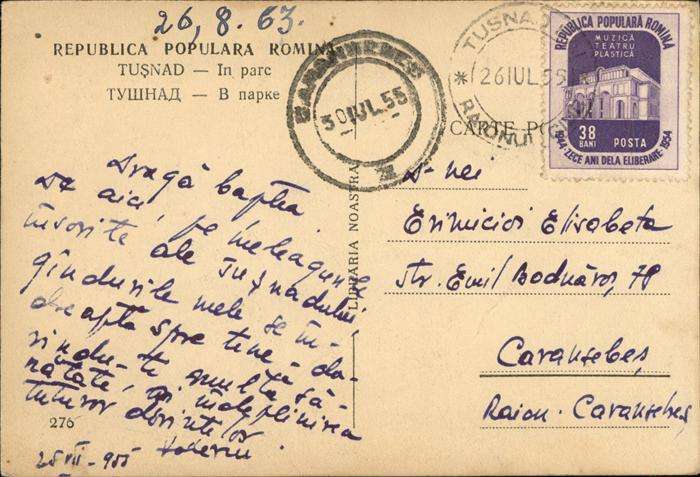 26, 8. 63.
REPUBLICA POPULARA ROMINA
TUȘNAD — In parc
ТУШНАД — В парке
CARANSEBEȘ
30 IUL. 55
TUȘNAD
* 26 IUL 55
RAIONUL
REPUBLICA POPULARA ROMINA
MUZICĂ
TEATRU
PLASTICĂ
38
BANI
POSTA
1944·ZECE ANI DELA ELIBERARE·1954
CARTE
LIBRARIA NOASTRA
Dragă
De aici, pe meleagurile
însorite ale Tușnadului,
gîndurile mele se în-
deaptă spre tine - do-
rindu-te multă să-
nătate, și îndeplinirea
tuturor dorințelor
25 VII - 955
276
D-nei
Elisabeta
str. Emil Bodnăraș, 78
Caransebeș
Raion. Caransebeș